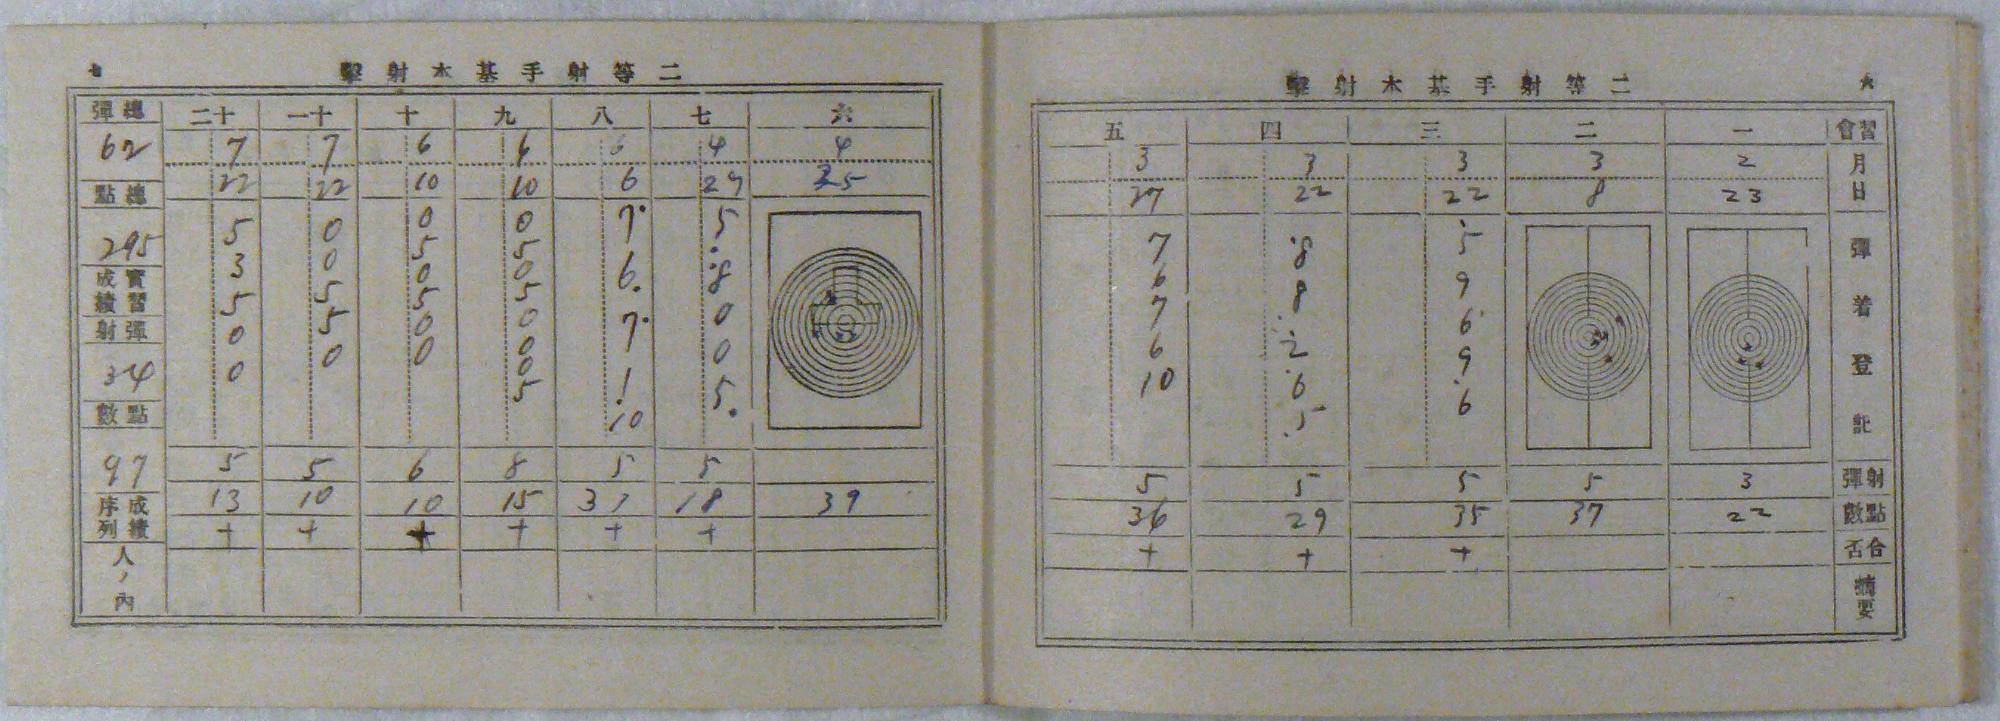 六
二等射手基本射擊
習會 一 二 三 四 五
月 2 3 3 3 3
日 23 8 22 22 27
彈着登記
5 8 7
9 8 6
6 2 7
9 6 6
6 5 10
射彈 3 5 5 5 5
點數 22 37 35 29 36
合否 + + +
摘要
七
二等射手基本射擊
六 七 八 九 十 十一 十二
4 4 6 6 6 7 7
25 6 10 10 22 22
5 7 0 0 0 5
8 6 5 5 0 3
0 7 0 0 5 5
0 1 5 5 5 0
5 10 0 0 0 0
0 0
0
5
5 5 8 6 5 5
39 18 31 15 10 10 13
+ + + + + +
總彈
62
總點
295
實習
成績
射彈
34
點數
97
成績
序列
人ノ內